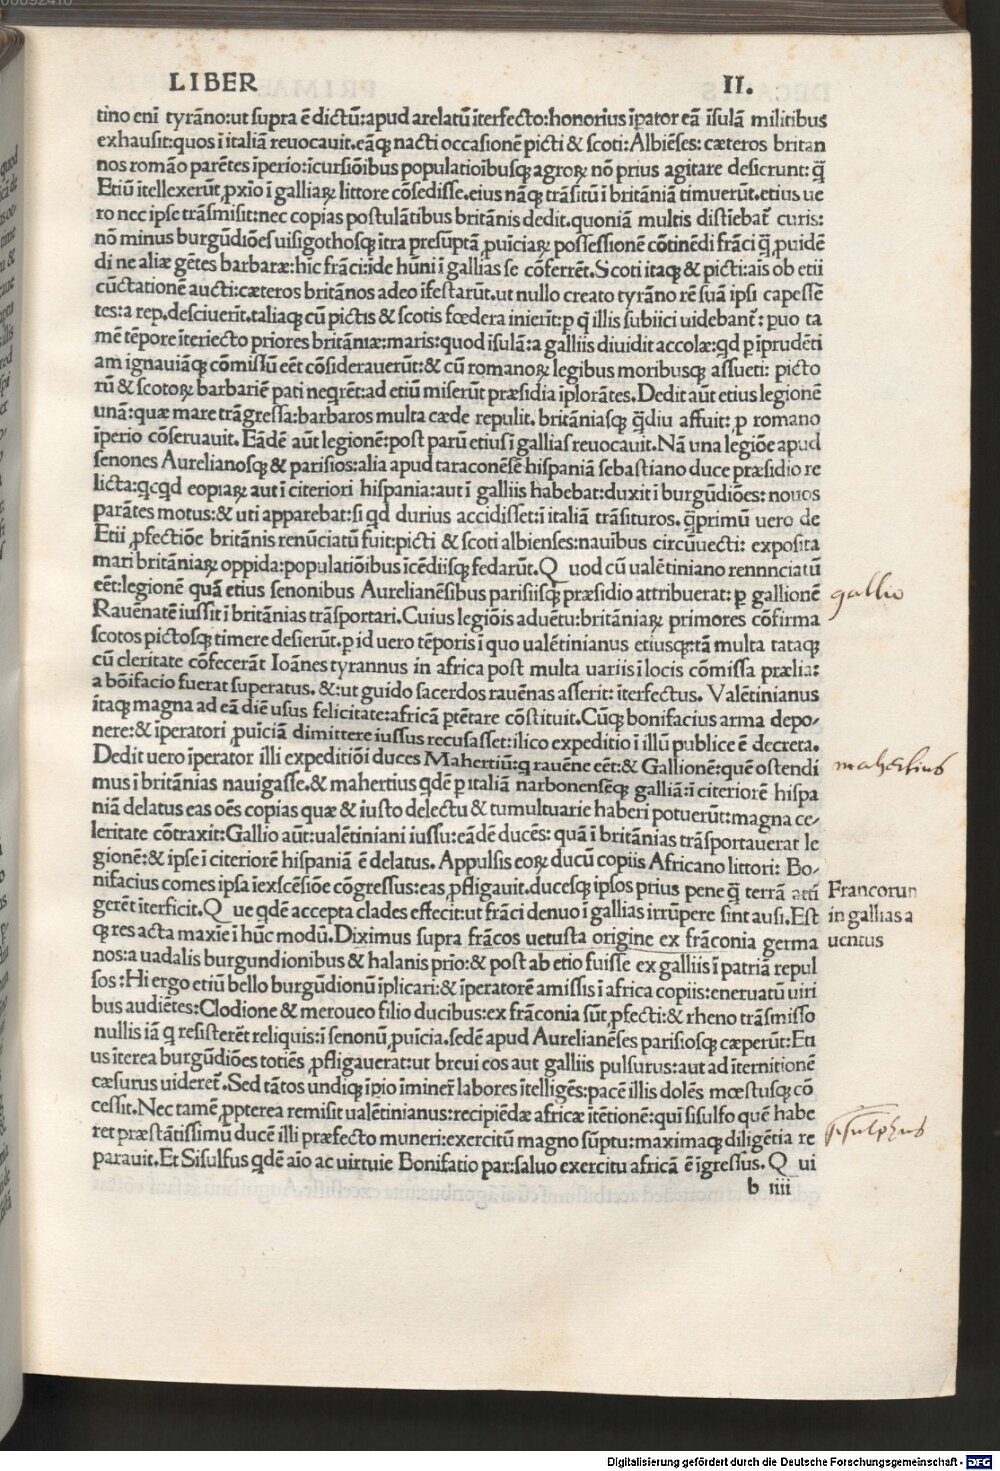 LIBER II.
tino enī tyrāno:ut supra ē dictū:apud arelatū īterfecto:honorius īpator eā īsulā militibus
exhausit:quos ī italiā reuocauit.eāq; nacti occasionē picti & scoti:Albiēses: cæteros britan
nos romāo parētes īperio:īcursiōibus populatioībusq; agroꝝ nō prius agitare desierunt: q̄
Etiū itellexerūt ꝓxīo ī galliaꝝ littore cōsedisse.eius nāq; trāsitū ī britāniā timuerūt.etius ue
ro nec ipse trāsmisit:nec copias postulātibus britānis dedit.quoniā multis distīebat᷑ curis:
nō minus burgūdiōes uisigothosq; ītra presūptā ꝓuīciaꝝ possessionē cōtinēdi frāci q̄ ꝓuidē
di ne aliæ gētes barbaræ:hīc frāci:īde hūni ī gallias se cōferrēt.Scoti itaq; & picti:aīs ob etii
cūctationē aucti:cæteros britānos adeo īfestarūt.ut nullo creato tyrāno rē suā ipsi capessē
tes:a rep.desciuerīt.taliaq; cū pictis & scotis fœdera inierīt:p q̄ illis subiici uidebant᷑: puo ta
mē tēpore īteriecto priores britāniæ:maris:quod īsulā:a galliis diuidit accolæ:qd p īprudēti
am ignauiāq; cōmissū eēt cōsiderauerūt:& cū romanoꝝ legibus moribusq; assueti: picto
rū & scotoꝝ barbariē pati neqrēt:ad etiū miserūt præsidia īplorātes.Dedit aūt etius legionē
unā:quæ mare trāgressa:barbaros multa cæde repulit. britāniasq; q̄diu affuit: p romano
īperio cōseruauit.Eādē aūt legionē:post parū etius ī gallias reuocauit.Nā una legiōe apud
senones Aurelianosq; & parisios:alia apud taraconēsē hispaniā sebastiano duce præsidio re
licta:qcqd eopiaꝝ aut ī citeriori hispania:aut ī galliis habebat:duxit ī burgūdiōes: nouos
parātes motus:& uti apparebat:si qd durius accidisset:ī italiā trāsituros. q̄primū uero de
Etii ꝓfectiōe britānis renūciatū fuit:picti & scoti albienses:nauibus circūuecti: exposita
mari britāniaꝝ oppida:populatiōibus īcēdiisq; fedarūt.Quod cū ualētiniano rennnciatū
eēt:legionē quā etius senonibus Aurelianēsibus parisiisq; præsidio attribuerat: p gallionē
Rauēnatē iussit ī britānias trāsportari.Cuius legiōis aduētu:britāniaꝝ primores cōfirma
scotos pictosq; timere desierūt.p id uero tēporis ī quo ualētinianus etiusq;:tā multa tataq;
cū cleritate cōfecerāt Ioānes tyrannus in africa post multa uariis ī locis cōmissa prælia:
a bōifacio fuerat superatus. &:ut guido sacerdos rauēnas asserit: īterfectus. Valētinianus
ītaq; magna ad eā diē usus felicitate:africā ptētare cōstituit.Cūq; bonifacius arma depo-
nere:& īperatori ꝓuīciā dimittere iussus recusasset:ilico expeditio ī illū publice ē decreta.
Dedit uero īperator illi expeditiōi duces Mahertiū:q rauēne eēt:& Gallionē:quē ostendi
mus ī britānias nauigasse.& mahertius qdē p italiā narbonensēq; galliā:ī citeriorē hispa
niā delatus eas oēs copias quæ & iusto delectu & tumultuarie haberi potuerūt:magna ce-
leritate cōtraxit:Gallio aūt:ualētiniani iussu:eādē ducēs: quā ī britānias trāsportauerat le
gionē:& ipse ī citeriorē hispaniā ē delatus. Appulsis eoꝝ ducū copiis Africano littori: Bo-
nifacius comes ipsa īexscēsiōe cōgressus:eas ꝓfligauit.ducesq; ipsos prius pene q̄ terrā attī
gerēt īterficit.Que qdē accepta clades effecit:ut frāci denuo ī gallias irrūpere sint ausi.Est
q; res acta maxīe ī hūc modū.Diximus supra frācos uetusta origine ex frāconia germa
nos:a uadalis burgundionibus & halanis prīo:& post ab etio fuisse ex galliis ī patriā repul
sos:Hi ergo etiū bello burgūdionū īplicari:& īperatorē amissis ī africa copiis:eneruatū uiri
bus audiētes:Clodione & meroueo filio ducibus:ex frāconia sūt ꝓfecti:& rheno trāsmisso
nullis iā q resisterēt reliquis:ī senonū ꝓuīcia.sedē apud Aurelianēses parisiosq; cæperūt:Eti
us īterea burgūdiōes totiēs ꝓfligauerat:ut breui eos aut galliis pulsurus:aut ad īternitionē
cæsurus uideret᷑.Sed tātos undiq; īpio īminer̄ labores ītelligēs:pacē illis dolēs mœstusq; cō
cessit.Nec tamē ꝓpterea remisit ualētinianus:recipiēdæ africæ ītētionē:quī sisulfo quē habe
ret præstātissimū ducē illi præfecto muneri:exercitū magno sūptu:maximaq; diligētia re
parauit.Et Sisulfus qdē aīo ac uirtuie Bonifatio par:saluo exercitu africā ē īgressus.Qui
b iiii
gallio
mahertius
Francorun
in gallias a
uentus
sisulphus
Digitalisierung gefördert durch die Deutsche Forschungsgemeinschaft - DFG